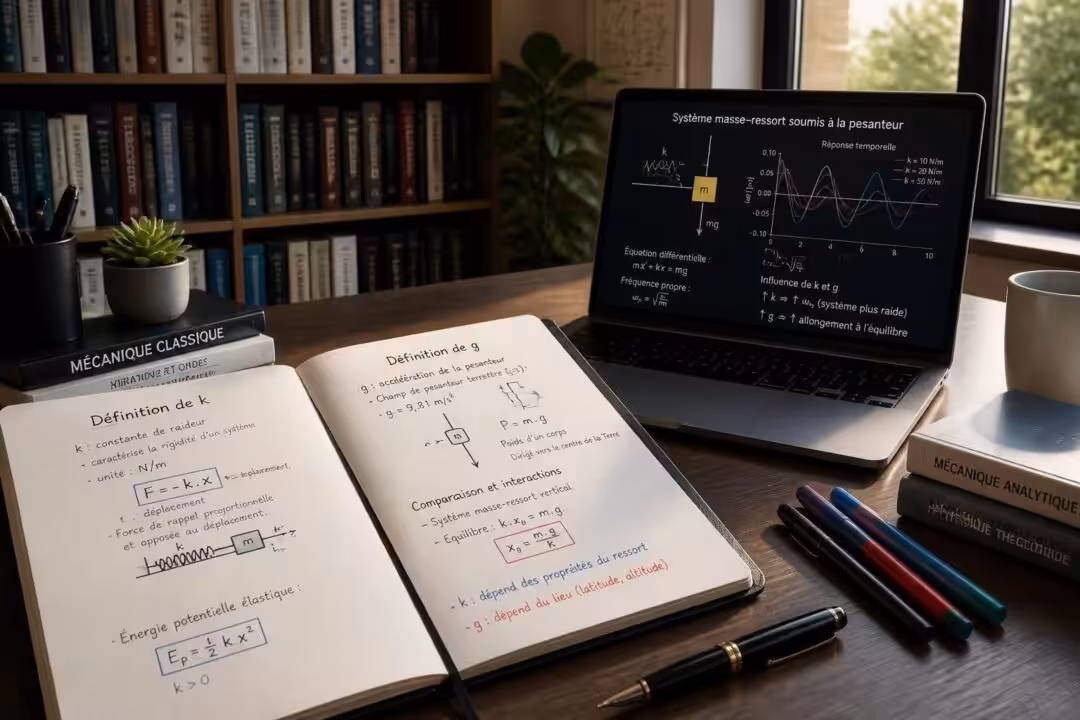 MÉCANIQUE CLASSIQUE
Définition de k
k : constante de raideur
- caractérise la rigidité d'un système
- unité : N/m
F = -k.x
déplacement
- Force de rappel proportionnelle
et opposée au déplacement.
k
m
- Énergie potentielle élastique :
Ep = 1/2 k.x²
k > 0
Définition de g
g : accélération de la pesanteur
- Champ de pesanteur terrestre
- g = 9,81 m/s²
m
P = m.g
Poids d'un corps
Dirigé vers le centre de la Terre
Comparaison et interactions
- Système masse-ressort vertical
- Équilibre : k.x₀ = m.g
x₀ = m.g/k
- k : dépend des propriétés du ressort
- g : dépend du lieu (latitude, altitude)
Système masse-ressort soumis à la pesanteur
k
m
mg
Équation différentielle :
Fréquence propre :
Réponse temporelle
k = 10 N/m
k = 20 N/m
k = 50 N/m
0.10
0.05
0.00
-0.05
-0.10
0 2 4 6 8 10
Influence de k et g
↑ k ⇒ ↑ (système plus raide)
↑ g ⇒ ↑ allongement à l'équilibre
MÉCANIQUE ANALYTIQUE